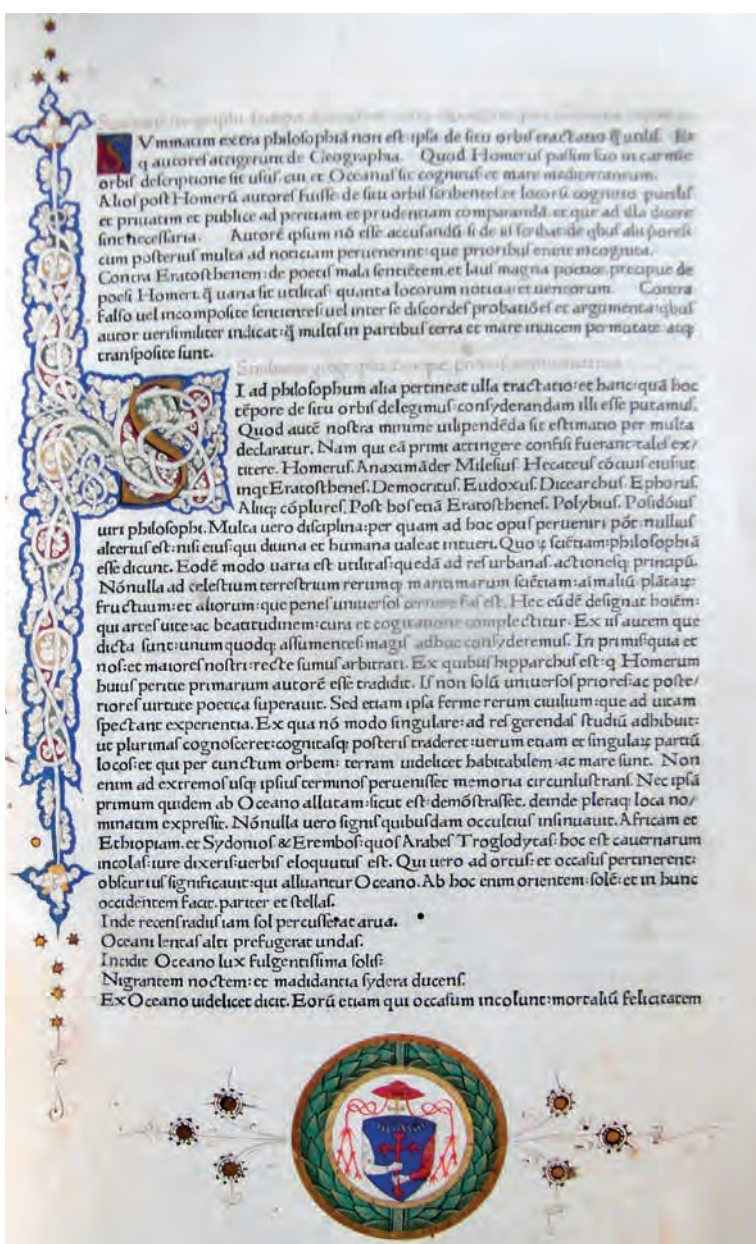 Vmmatim extra philosophiā non est ipsa de situ orbis tractatio Ex
q autores attigerunt de Geographia. Quod Homerus passim suo in carmīe
orbis descriptione sit usus cui et Oceanus sit cognitus et mare mediterraneum.
Alios post Homerū autores fuisse de situ orbis scribentes et locorū cognitio
et priuatim et publice ad peritiam et prudentiam comparandā et que ad illa
sint necessaria. Autorē ipsum nō esse accusandū si de iis scribat de qbus alii
cum posterius multa ad noticiam peruenerint: que prioribus erant incognita.
Contra Eratosthenem: de poetis mala sentiētem et laus magna poetice precipue de
poesi Homeri. uaria sit utilitas quanta locorum noticia: et uentorum. Contra
Falso uel incomposite sentientes: uel inter se discordes probatiōes et argumenta: qbus
autor uerisimiliter indicat: multis in partibus terra et mare inuicem permutate atq;
transposite sunt.
SI ad philosophum alia pertineat ulla tractatio: et hanc: quā hoc
tēpore de situ orbis delegimus: consyderandam illi esse putamus.
Quod autē nostra minime uilipendēda sit estimatio per multa
declaratur. Nam qui eā primi attingere confisi fuerant: tales ex/
titere. Homerus. Anaximāder Milesius. Hecateus cōciuis eius: ut
inqt Eratosthenes. Democritus. Eudoxus. Dicearchus. Ephorus.
Aliiq; cōplures. Post hos etiā Eratosthenes. Polybius. Posidōius
uiri philosophi. Multa uero disciplina: per quam ad hoc opus perueniri pōt: nullius
alterius est: nisi eius: qui diuina et humana ualeat intueri. Quoꝝ sciētiam: philosophiā
esse dicunt. Eodē modo uaria est utilitas: quedā ad res urbanas actionesq; principū.
Nōnulla ad celestium terrestrium rerumq; maritimarum sciētiam: aīmaliū plātaꝝ:
fructuum: et aliorum: que penes uniuersos cernere fas est. Hec eūdē designat hoīem:
qui artes uite: ac beatitudinem: cura et cogitatione complectitur. Ex iis autem que
dicta sunt: unum quodq; assumentes magis adhuc consyderemus. In primis: quia et
nos: et maiores nostri: recte sumus arbitrati. Ex quibus hipparchus est: q Homerum
huius peritie primarium autorē esse tradidit. Is non solū uniuersos priores: ac poste/
riores uirtute poetica superauit. Sed etiam ipsa ferme rerum ciuilium: que ad uitam
spectant experientia. Ex qua nō modo singulare: ad res gerendas studiū adhibuit:
ut plurimas cognosceret: cognitasq; posteris traderet: uerum etiam et singulaꝝ partiū
locos: et qui per cunctum orbem: terram uidelicet habitabilem: ac mare sunt. Non
enim ad extremos usq; ipsius terminos peruenisset memoria circunlustrans. Nec ipsā
primum quidem ab Oceano allutam: sicut est: demōstrasset. deinde pleraq; loca no/
minatim expressit. Nōnulla uero signis quibusdam occultius insinuauit. Africam et
Ethiopiam. et Sydonios & Erembos: quos Arabes Troglodytas: hoc est cauernarum
incolas: iure dixeris: uerbis eloquutus est. Qui uero ad ortus: et occasus pertinerent:
obscurius significauit: qui alluantur Oceano. Ab hoc enim orientem: solē: et in hunc
occidentem facit. pariter et stellas.
Inde recens radiis iam sol percusserat arua.
Oceani lentas alti prefugerat undas.
Incidit Oceano lux fulgentissima solis:
Nigrantem noctem: et madidantia sydera ducens.
Ex Oceano uidelicet dicit. Eorū etiam qui occasum incolunt: mortaliū felicitatem